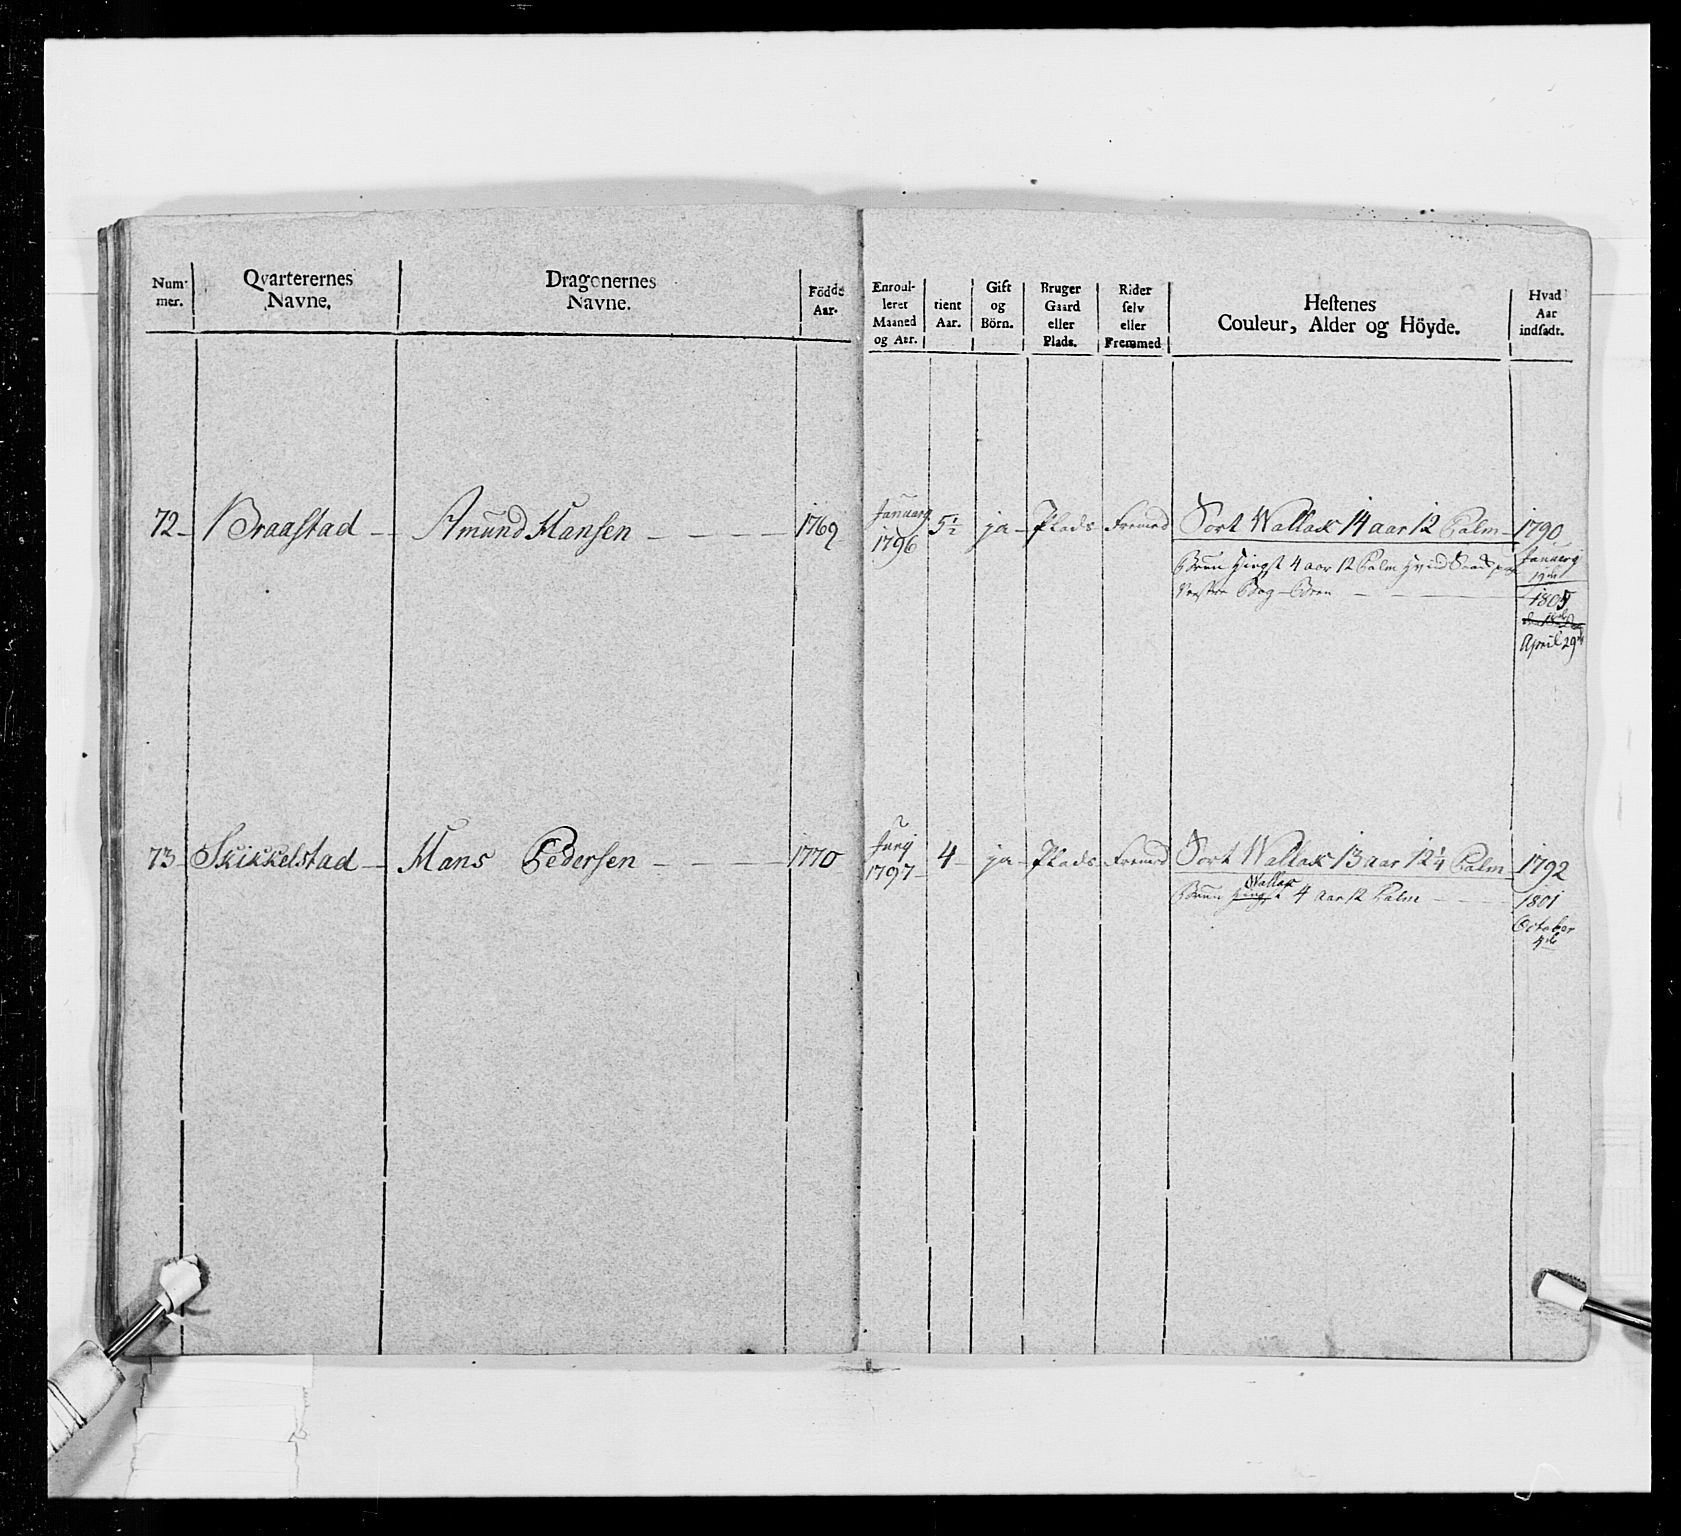 Num-
mer.
Qvarterernes
Navne.
Dragonernes
Navne.
Födde
Aar.
Enroul-
leret
Maaned
og Aar.
tient
Aar.
Gift
og
Börn.
Bruger
Gaard
eller
Plads.
Rider
selv
eller
Fremmed
Hestenes
Couleur, Alder og Höyde.
Hvad
Aar
indsadt.
72 Braastad Amund Hansen 1769 January 1796 5½ ja Plads Fremed Sort Wallak 14 aar 12 Palm 1790
Bruun Hingst 4 aar 12 Palm Hvid
January
19de
1805
April 29de
73 Skikkelstad Hans Pedersen 1770 Juny 1797 4 ja Plads Fremed Sort Wallak 13 aar 12¼ Palm 1792
Wallak
Bruun Hingst 4 aar 12 Palm 1801
October
4de